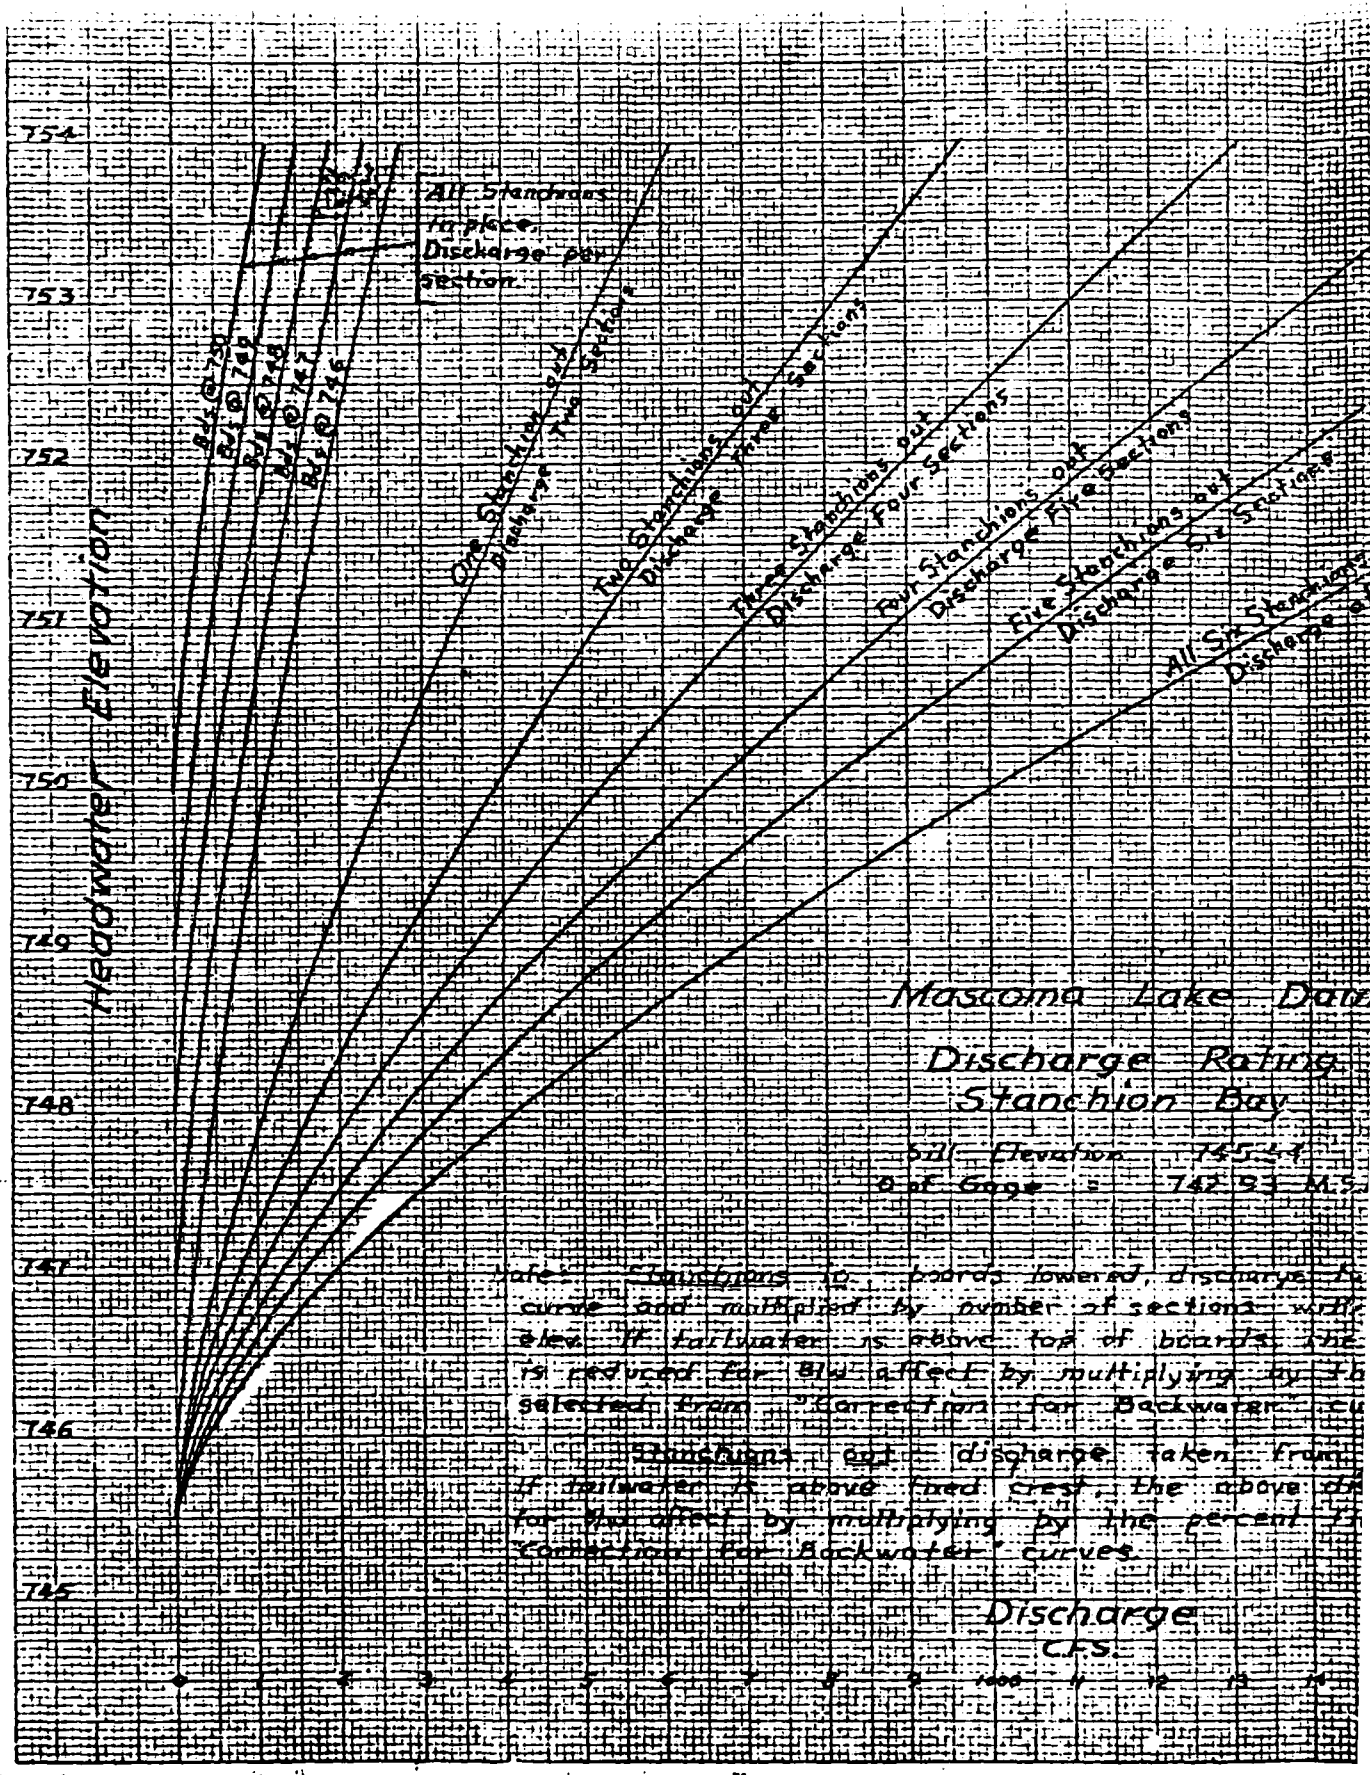 754
All Stanchions
in place.
Discharge per
section.
753
Bds @ 750
Bds @ 749
Bds @ 748
Bds @ 747
Bds @ 746
One Stanchion out
Discharge Two Sections
Two Stanchions out
Discharge Three Sections
Three Stanchions out
Discharge Four Sections
Four Stanchions out
Discharge Five Sections
Five Stanchions out
Discharge Six Sections
All Six Stanchions
Discharge
752
751
750
749
748
747
746
745
Headwater Elevation
Mascoma Lake Dam
Discharge Rating
Stanchion Bay
Sill Elevation
0 of Gage = 742.93 M.S.
Stanchions in boards lowered, discharge
curve and multiplied by number of sections
elev. If tailwater is above top of boards, the
is reduced for B/W affect by multiplying by
selected from "Correction for Backwater"
Stanchions out discharge taken from
If tailwater is above fixed crest, the above
for B/W affect by multiplying by the percent
"Correction for Backwater" curves.
Discharge
C.F.S.
0 1 2 3 4 5 6 7 8 9 1000 11 12 13 14